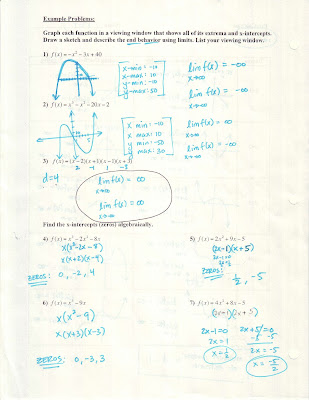 Example Problems:
Graph each function in a viewing window that shows all of its extrema and x-intercepts.
Draw a sketch and describe the end behavior using limits. List your viewing window.
1) f(x) = -x² - 3x + 40
x-min: -10
x-max: 10
y-min: -10
y-max: 50
lim f(x) = -∞
x→∞
lim f(x) = -∞
2) f(x) = x³ - x² - 20x - 2
x min: -10
x max: 10
y min: -50
y max: 30
lim f(x) = ∞
x→∞
lim f(x) = -∞
3) f(x) = (x-2)(x+1)(x-1)(x+3)
2 -1 1
d=4
lim f(x) = ∞
x→∞
lim f(x) = ∞
Find the x-intercepts (zeros) algebraically.
4) f(x) = x³ - 2x² - 8x
x(x²-2x-8)
x(x+2)(x-4)
ZEROS: 0, -2, 4
5) f(x) = 2x² + 9x - 5
(2x-1)(x+5)
2x-1=0
ZEROS: 1/2, -5
6) f(x) = x³ - 9x
x(x²-9)
x(x+3)(x-3)
ZEROS: 0, -3, 3
7) f(x) = 4x² + 8x - 5
(2x-1)(2x+5)
2x-1=0 2x+5=0
2x=1 -5 -5
x=1/2 2x=-5
x=-5/2